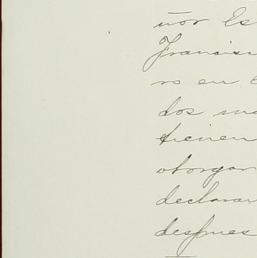 ñor Es
Francis
ro en
dos ma
tienen
otorgan
declarar
despues